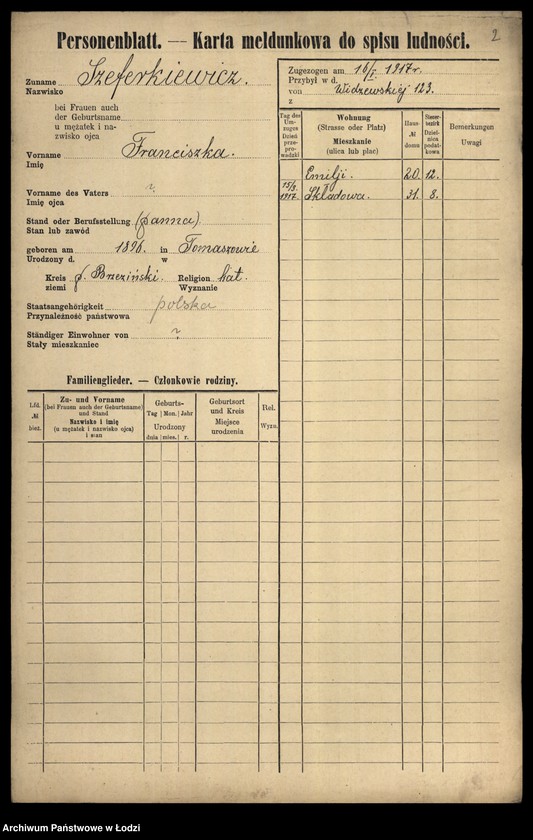 2
Personenblatt. — Karta meldunkowa do spisu ludności.
Zuname Szeferkiewicz.
Nazwisko
bei Frauen auch
der Geburtsname
u mężatek i na-
zwisko ojca
Vorname Franciszka.
Imię
Vorname des Vaters ?
Imię ojca
Stand oder Berufsstellung (panna)
Stan lub zawód
geboren am 1896. in Tomaszowie
Urodzony d. w
Kreis p. Brzeziński. Religion kat.
ziemi Wyznanie
Staatsangehörigkeit polska
Przynależność państwowa
Ständiger Einwohner von ?
Stały mieszkaniec
Familienglieder. — Członkowie rodziny.
Lfd. № bież.
Zu- und Vorname
(bei Frauen auch der Geburtsname)
und Stand
Nazwisko i imię
(u mężatek i nazwisko ojca)
i stan
Geburts-
Tag Mon. Jahr
Urodzony
dnia mies. r.
Geburtsort
und Kreis
Miejsce
urodzenia
Rel.
Wyzn.
Zugezogen am 16/I. 1917 r.
Przybył w d.
von Widzewskiej 123.
z
Tag des
Um-
zuges
Dzień
prze-
pro-
wadzki
Wohnung
(Strasse oder Platz)
Mieszkanie
(ulica lub plac)
Haus-
№
domu
Steuer-
bezirk
Dziel-
nica
podat-
kowa
Bemerkungen
Uwagi
Emilji. 20. 12.
1917. Składowa. 31. 8.
Archiwum Państwowe w Łodzi